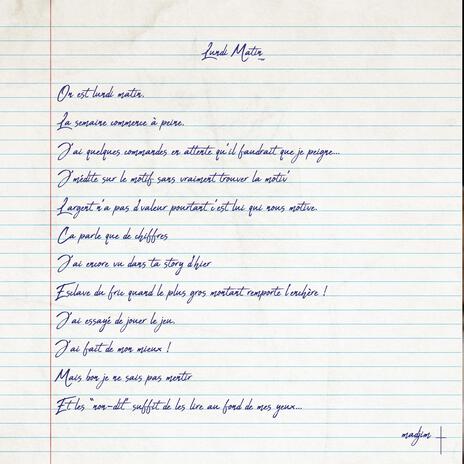 Lundi Matin
On est lundi matin.
La semaine commence à peine.
J'ai quelques commandes en attente qu'il faudrait que je peigne...
J'médite sur le motif sans vraiment trouver la motiv'
Largent n'a pas d'valeur pourtant c'est lui qui nous motive.
Ca parle que de chiffres
J'ai encore vu dans ta story d'hier
Esclave du fric quand le plus gros montant remporte l'enchère !
J'ai essayé de jouer le jeu.
J'ai fait de mon mieux !
Mais bon je ne sais pas mentir
Et les "non-dit" suffit de les lire au fond de mes yeux...
madjim